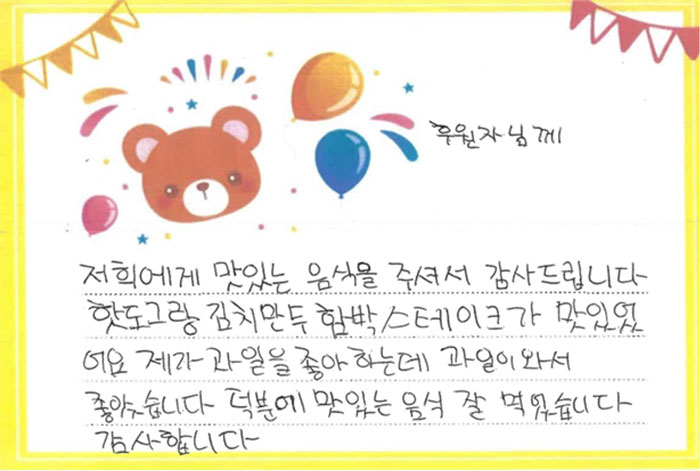 후원자님께
저희에게 맛있는 음식을 주셔서 감사드립니다
핫도그랑 김치만두 함박스테이크가 맛있었
어요 제가 과일을 좋아하는데 과일이와서
좋았습니다 덕분에 맛있는 음식 잘 먹었습니다
감사합니다